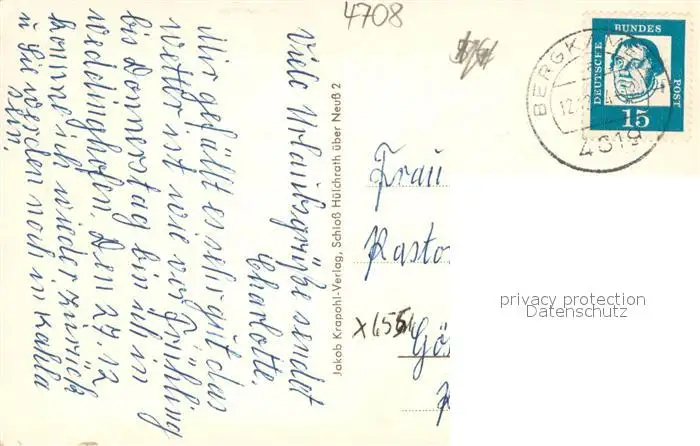 4708
Viele Urlaubsgrüße sendet
Charlotte.
Mir gefällt es sehr gut das
Wetter ist wie vor Frühling
bis Donnerstag bin ich in
Weddinghofen. Den 27.12
komme ich wieder zurück
u Sie werden noch in Kahla
sein.
Jakob Krapohl-Verlag, Schloß Hülchrath über Neuß 2
DEUTSCHE
BUNDES
POST
15
BERGKAM
12.
4619
Frau
Kasto
x6551
Gös
privacy protection
Datenschutz